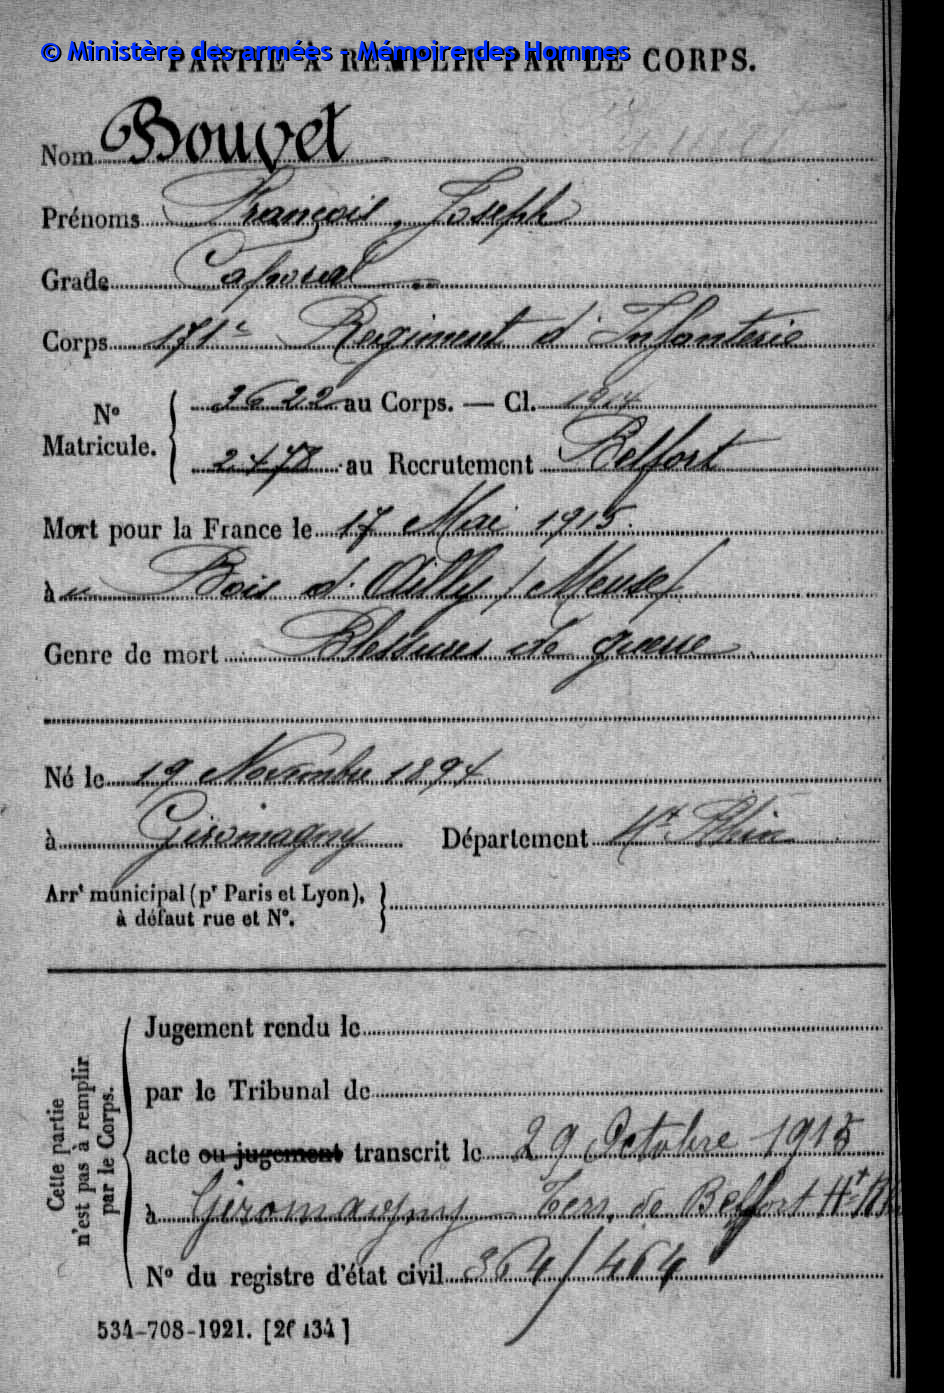 © Ministère des armées - Mémoire des Hommes
PARTIE À REMPLIR PAR LE CORPS.
Nom Bouvet
Prénoms François, Joseph
Grade Caporal
Corps 171e Régiment d'Infanterie
No Matricule. { 3622 au Corps. — Cl. 1914
2478 au Recrutement Belfort
Mort pour la France le 17 Mai 1915.
à Bois d'Ailly (Meuse)
Genre de mort Blessures de guerre
Né le 19 Novembre 1894
à Giromagny Département Ht Rhin
Arrt municipal (pr Paris et Lyon),
à défaut rue et No. }
Cette partie
n'est pas à remplir
par le Corps.
Jugement rendu le
par le Tribunal de
acte ou jugement transcrit le 29 Octobre 1915
à Giromagny - Terr. de Belfort Ht Rhin
No du registre d'état civil 364/464
534-708-1921. [26134]